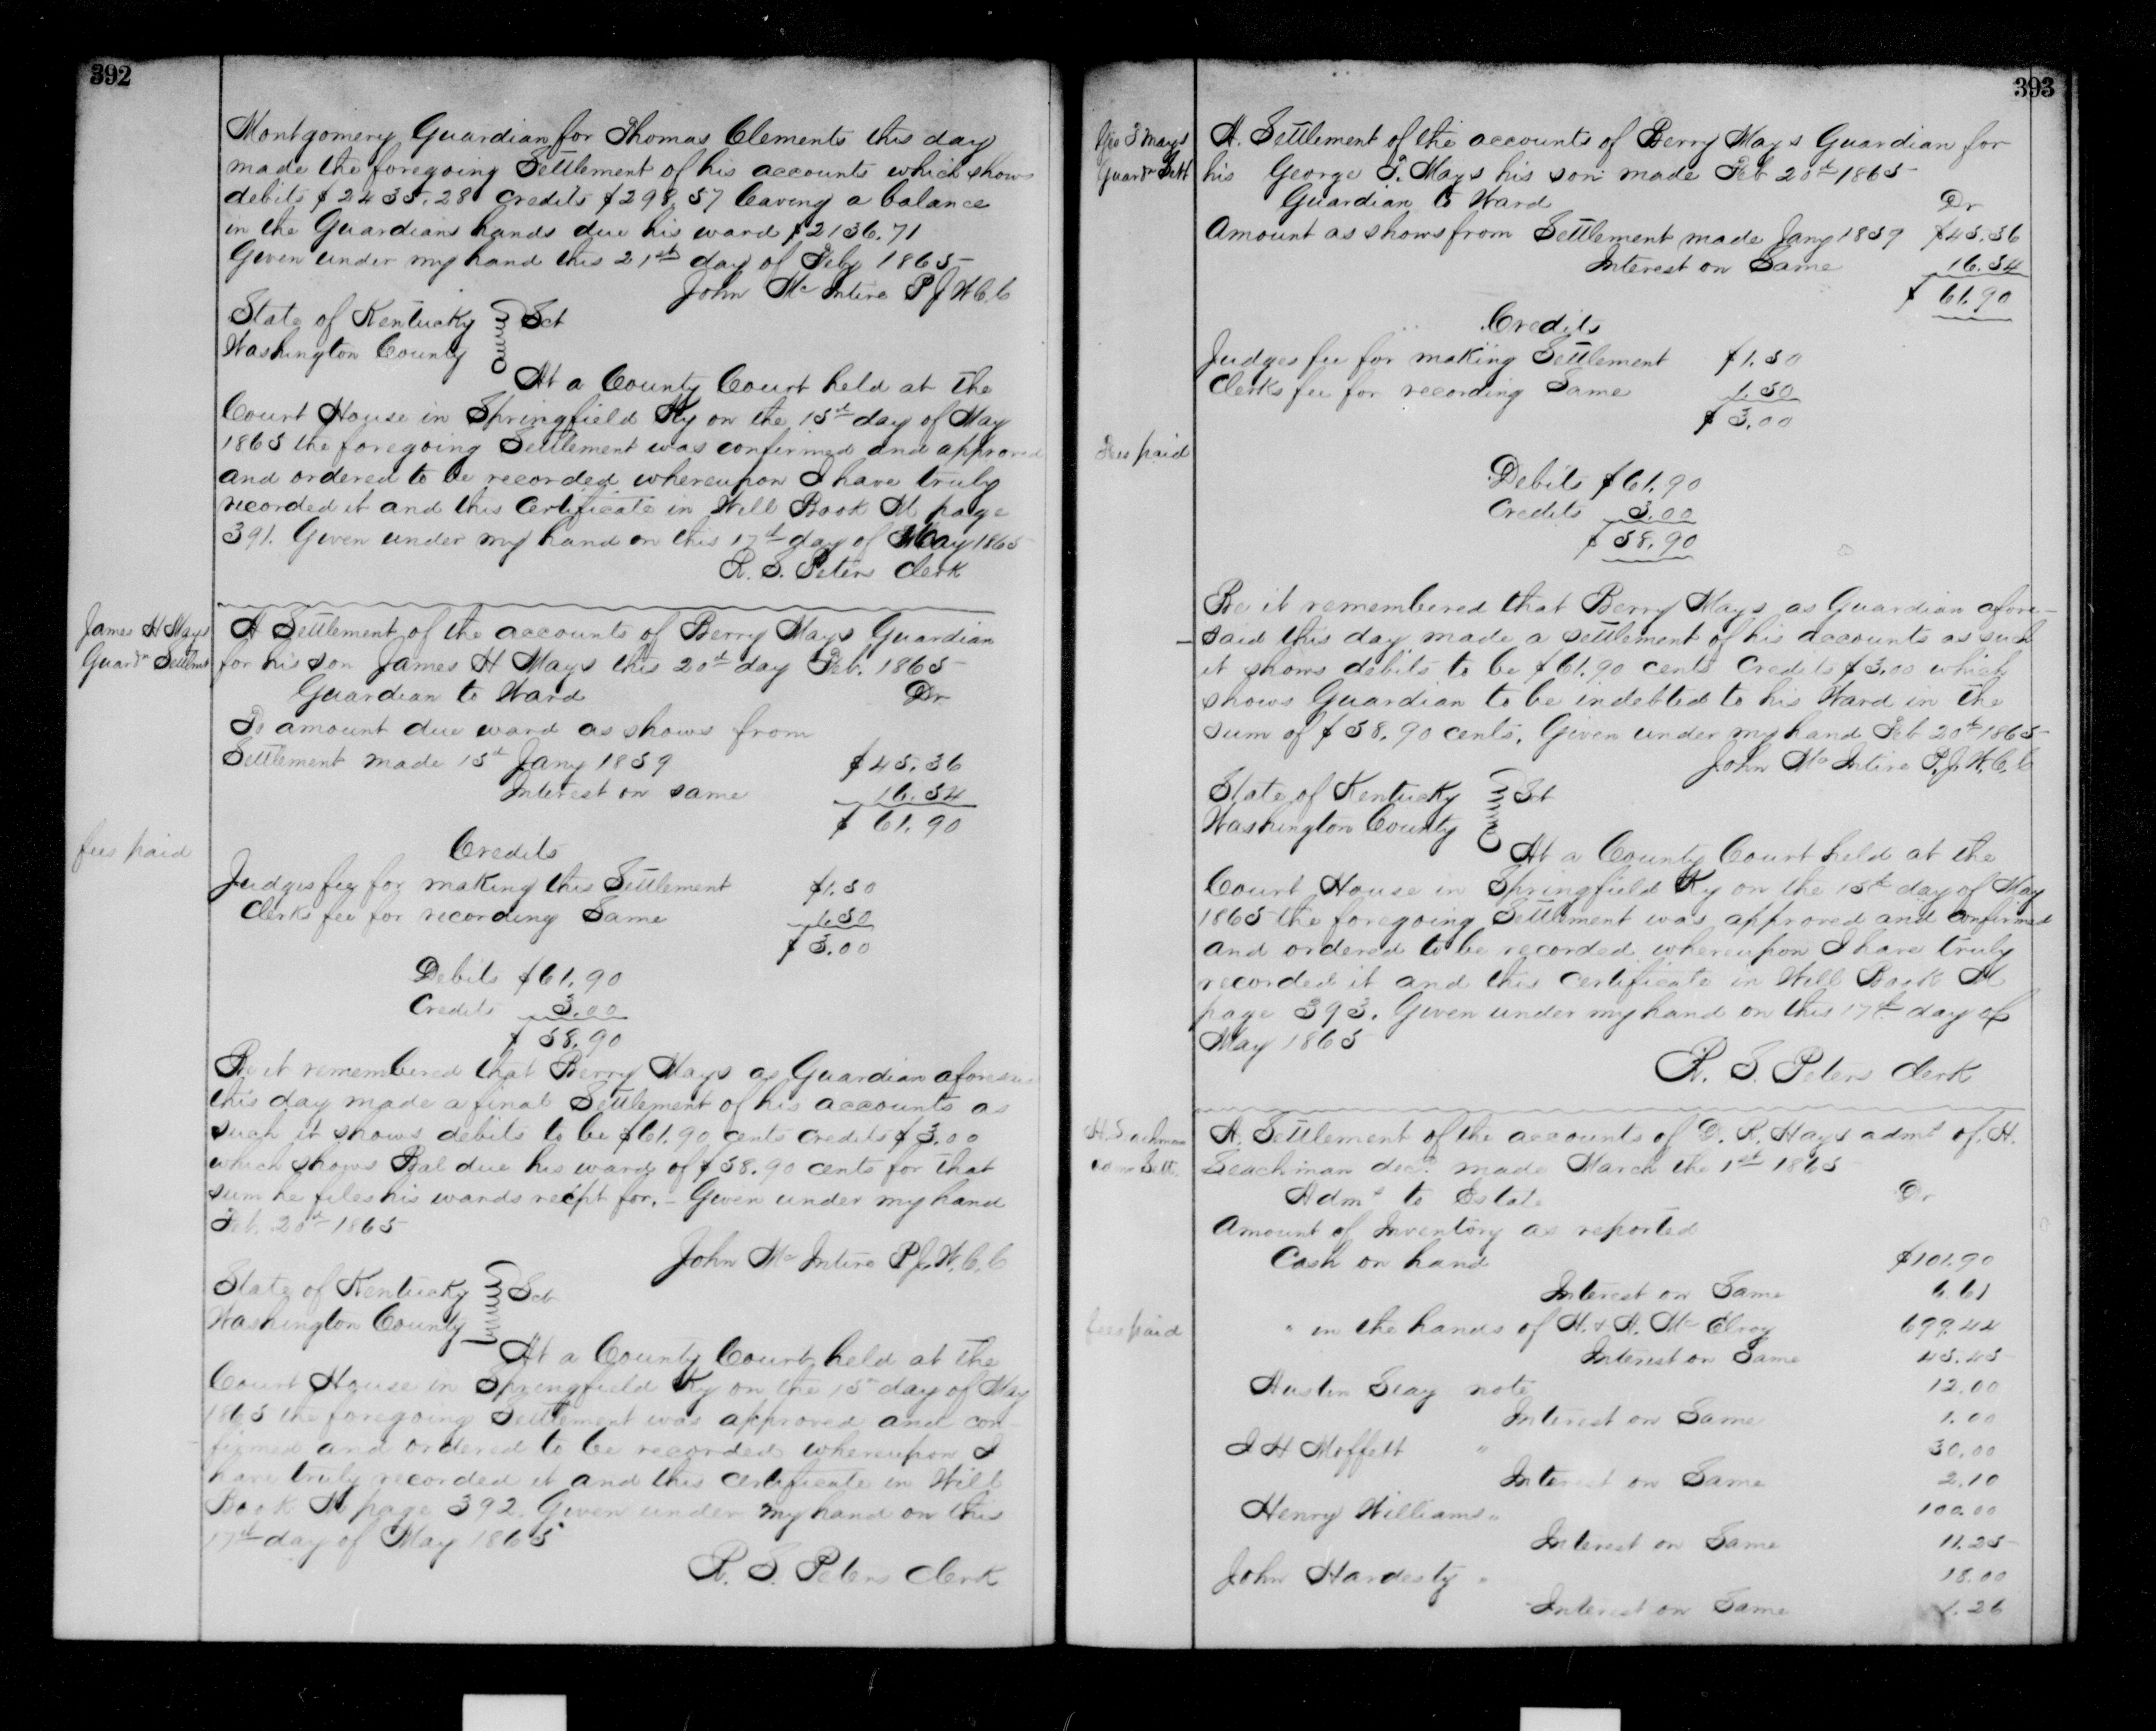 392
Montgomery Guardian for Thomas Clements this day
made the foregoing Settlement of his accounts which shows
debits $2435.28 credits $298.57 leaving a balance
in the Guardians hands due his ward $2136.71
Given under my hand this 21st day of Feby 1865
John McIntire P.J.W.C.C
State of Kentucky Sct
Washington County
At a County Court held at the
Court House in Springfield Ky on the 15th day of May
1865 the foregoing Settlement was confirmed and approved
and ordered to be recorded whereupon I have truly
recorded it and this Certificate in Will Book M page
391. Given under my hand on this 17th day of May 1865
R. S. Peters Clerk
James H Mays
Guardn Settlmt
A Settlement of the accounts of Berry Mays Guardian
for his son James H Mays this 20th day Feb. 1865
Guardian to Ward Dr
To amount due ward as shows from
Settlement made 15th Jany 1859 $45.36
Interest on same 16.54
$61.90
fees paid
Credits
Judges fee for making this Settlement $1.50
Clerks fee for recording Same 1.50
$3.00
Debits $61.90
Credits 3.00
$58.90
Be it remembered that Berry Mays as Guardian aforesaid
this day made a final Settlement of his accounts as
such it shows debits to be $61.90 cents credits $3.00
which shows Bal due his ward of $58.90 cents for that
sum he files his wards recipt for. - Given under my hand
Feb. 20th 1865
John McIntire P.J.W.C.C
State of Kentucky Sct
Washington County
At a County Court held at the
Court House in Springfield Ky on the 15th day of May
1865 the foregoing Settlement was approved and con-
firmed and ordered to be recorded whereupon I
have truly recorded it and this certificate in Will
Book M page 392. Given under my hand on this
17th day of May 1865
R. S. Peters Clerk
393
Geo T Mays
Guardn Sett
A. Settlement of the accounts of Berry Mays Guardian for
his George T. Mays his son made Feb 20th 1865
Guardian to Ward Dr
Amount as shows from Settlement made Jany 1859 $45.36
Interest on Same 16.54
$61.90
Credits
Judges fee for making Settlement $1.50
Clerks fee for recording Same 1.50
$3.00
Fees paid
Debits $61.90
Credits 3.00
$58.90
Be it remembered that Berry Mays as Guardian afore-
said this day made a settlement of his accounts as such
it shows debits to be $61.90 cents Credits $3.00 which
shows Guardian to be indebted to his Ward in the
sum of $58.90 cents. Given under my hand Feb 20th 1865
John McIntire P.J.W.C.C
State of Kentucky Sct
Washington County
At a County Court held at the
Court House in Springfield Ky on the 15th day of May
1865 the foregoing Settlement was approved and confirmed
and ordered to be recorded whereupon I have truly
recorded it and this certificate in Will Book M
page 393. Given under my hand on this 17th day of
May 1865
R. S. Peters Clerk
H. Seachman
admr Sett.
A. Settlement of the accounts of D. R. Hays admr of H.
Seachman decd made March the 1st 1865
Admr to Estate Dr
Amount of Inventory as reported
Cash on hand $101.90
Interest on Same 6.61
fees paid
" in the hands of H. & A. McElroy 699.42
Interest on Same 45.45
Austin Seay note 12.00
Interest on Same 1.00
J H Moffett " 30.00
Interest on Same 2.10
Henry Williams " 100.00
Interest on Same 11.25
John Hardesty " 18.00
Interest on Same 1.26